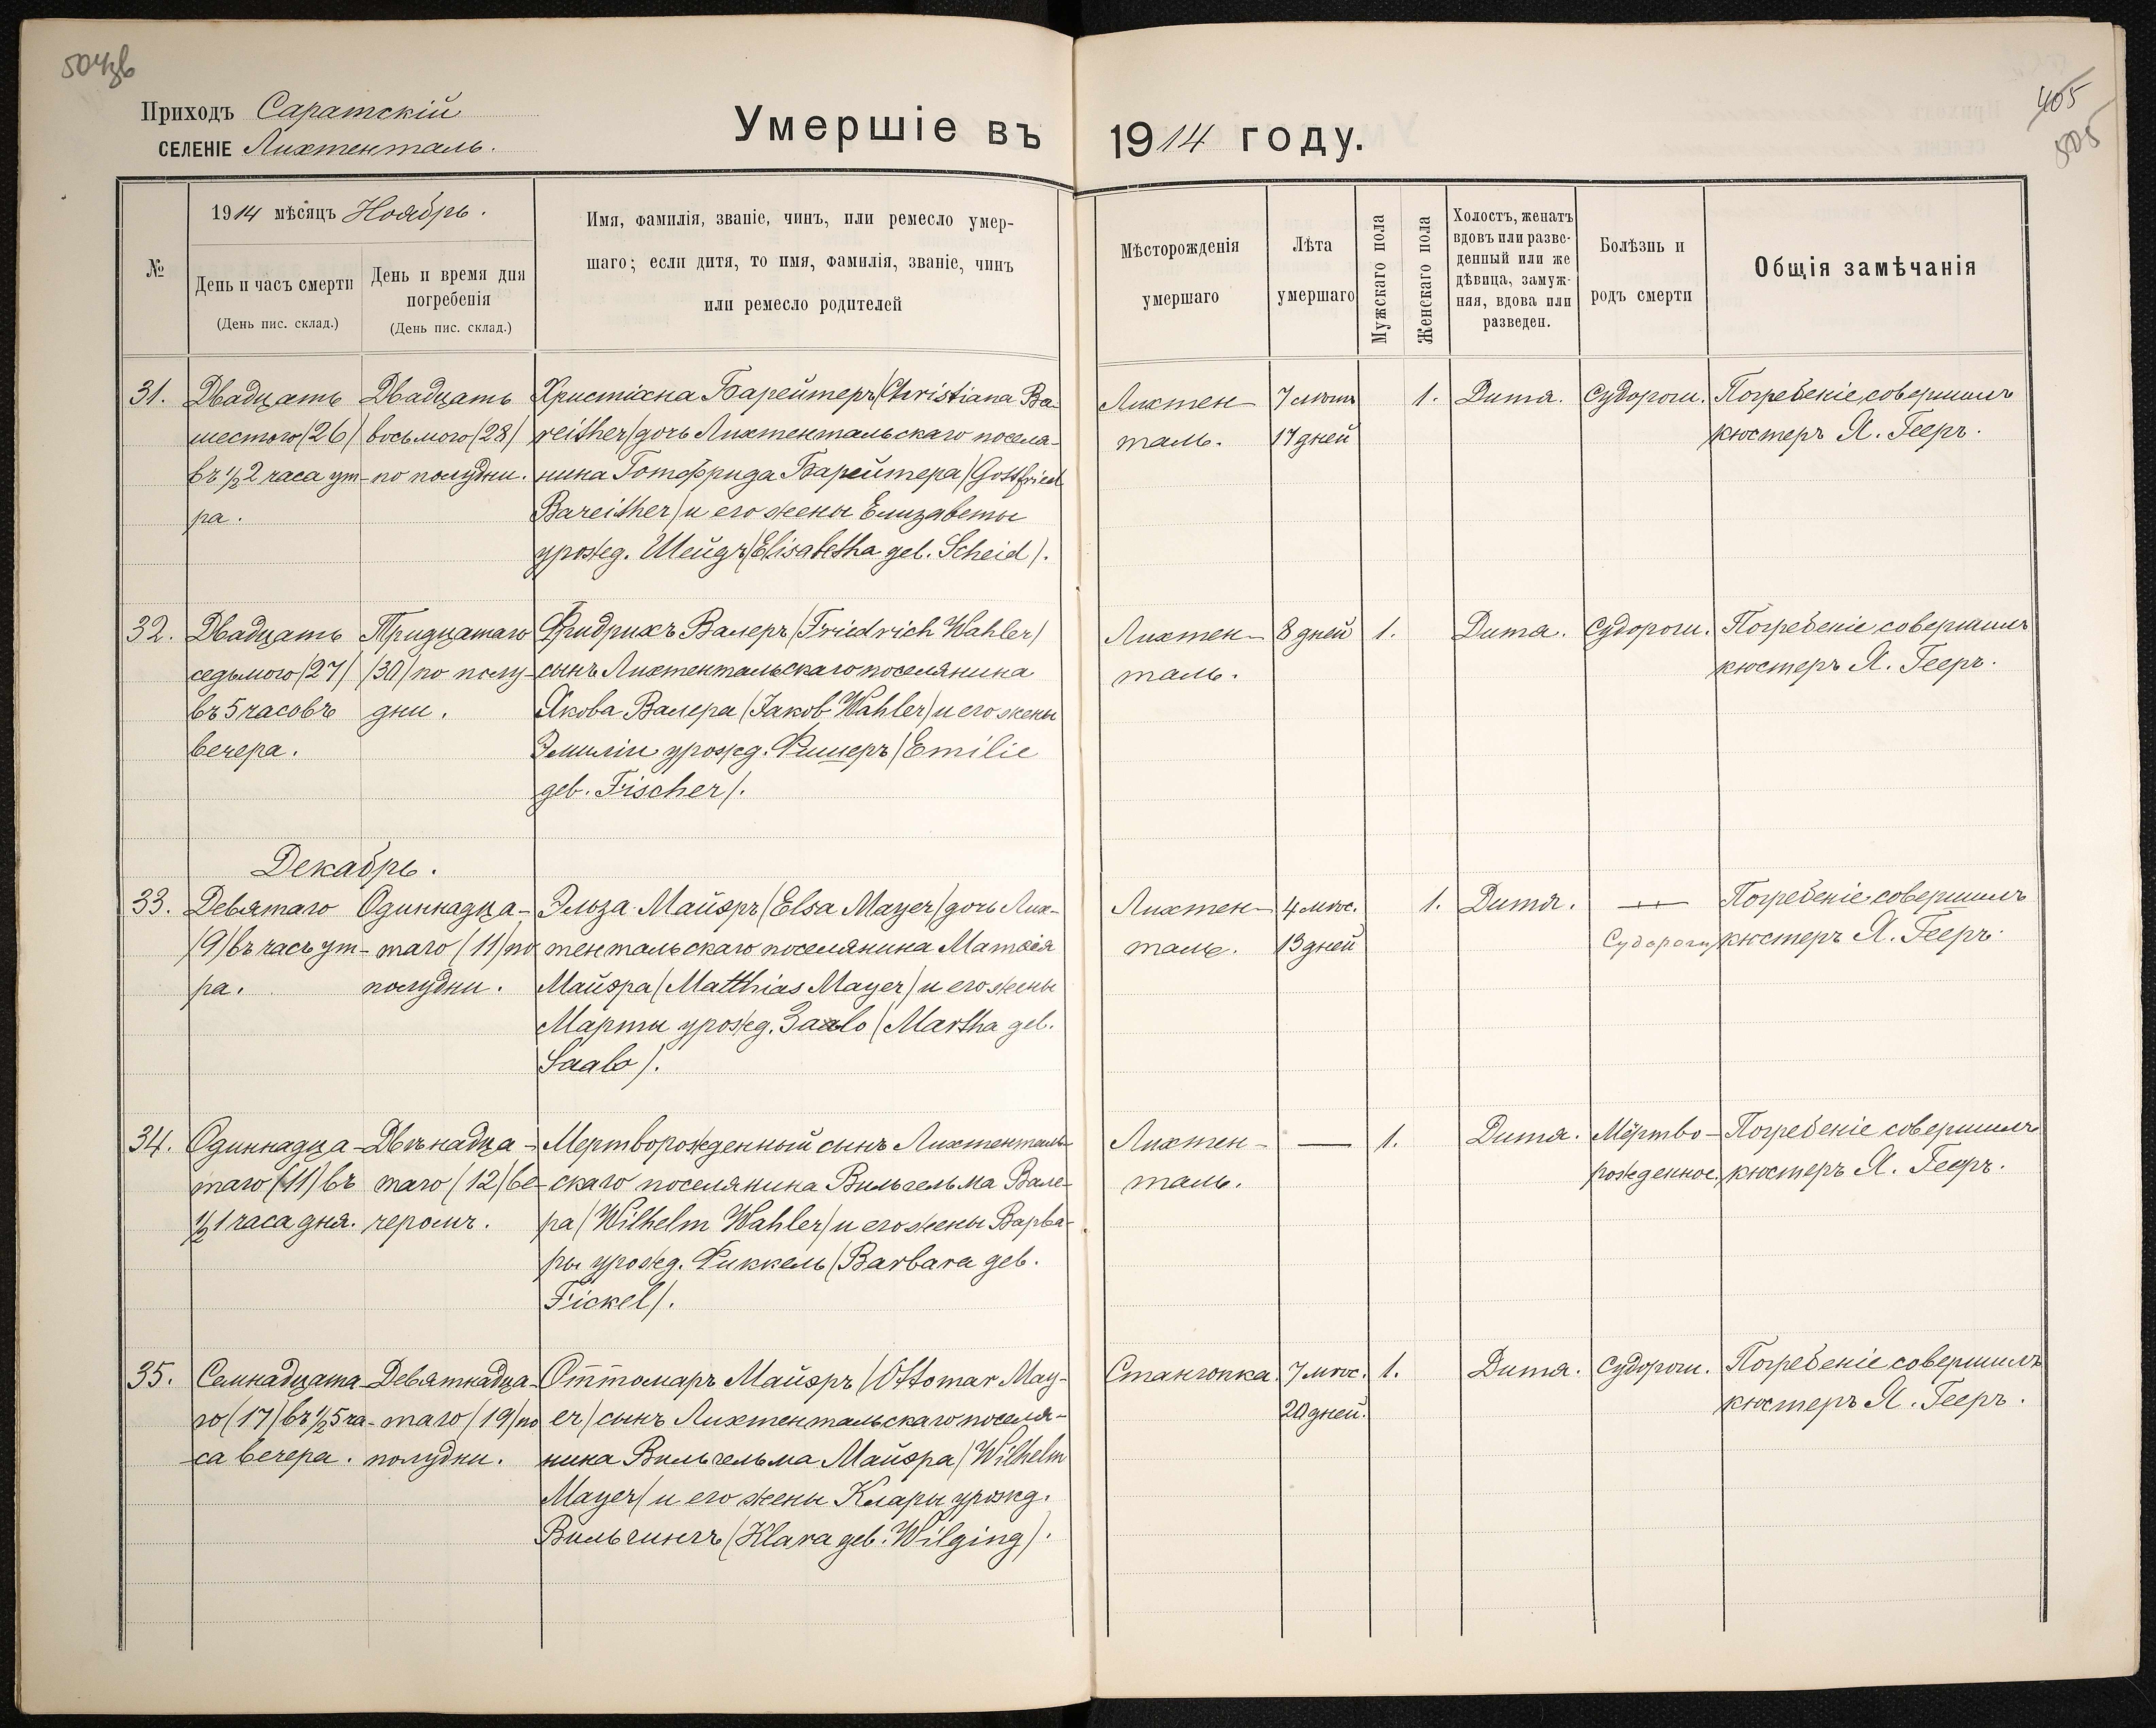 504об
405
505
Приходъ Саратскій
СЕЛЕНІЕ Лихтенталь.
Умершіе въ 1914 году.
№
1914 мѣсяцъ Ноябрь.
День и часъ смерти
(День пис. склад.)
День и время дня
погребенія
(День пис. склад.)
Имя, фамилія, званіе, чинъ, или ремесло умер-
шаго; если дитя, то имя, фамилія, званіе, чинъ
или ремесло родителей
Мѣсторожденія
умершаго
Лѣта
умершаго
Мужскаго пола
Женскаго пола
Холостъ, женатъ
вдовъ или разве-
денный или же
дѣвица, замуж-
няя, вдова или
разведен.
Болѣзнь и
родъ смерти
Общія замѣчанія
31.
Двадцать
шестого (26)
въ ½2 часа ут-
ра.
Двадцать
восьмого (28)
по полудни.
Христіана Барейтеръ (Christiana Ba-
reither) дочь Лихтентальскаго поселя-
нина Готфрида Барейтера (Gottfried
Bareither) и его жены Елизаветы
урожд. Шейдъ (Elisabetha geb. Scheid).
Лихтен-
таль.
7 мѣсяц
17 дней
1.
Дитя.
Судороги.
Погребеніе совершилъ
кюстеръ Я. Гееръ.
32.
Двадцать
седьмого (27)
въ 5 часовъ
вечера.
Тридцатаго
(30) по полу-
дни.
Фридрихъ Валеръ (Friedrich Wahler)
сынъ Лихтентальскаго поселянина
Якова Валера (Jakob Wahler) и его жены
Эмиліи урожд. Фишеръ (Emilie
geb. Fischer).
Лихтен-
таль.
8 дней
1.
Дитя.
Судороги.
Погребеніе совершилъ
кюстеръ Я. Гееръ.
Декабрь.
33.
Девятаго
(9) въ часъ ут-
ра.
Одиннадца-
таго (11) по
полудни.
Эльза Майэръ (Elsa Mayer) дочь Лих-
тентальскаго поселянина Матѳія
Майэра (Matthias Mayer) и его жены
Марты урожд. Заалo (Martha geb.
Saalo).
Лихтен-
таль.
4 мѣс.
13 дней
1.
Дитя.
Судороги
Погребеніе совершилъ
кюстеръ Я. Гееръ.
34.
Одиннадца-
таго (11) въ
½1 часа дня.
Двѣнадца-
таго (12) ве-
черомъ.
Мертворожденный сынъ Лихтенталь-
скаго поселянина Вильгельма Вале-
ра (Wilhelm Wahler) и его жены Варва-
ры урожд. Фиккель (Barbara geb.
Fickel).
Лихтен-
таль.
—
1.
Дитя.
Мёртво-
рожденное.
Погребеніе совершилъ
кюстеръ Я. Гееръ.
35.
Семнадцата-
го (17) въ ½5 ча-
са вечера.
Девятнадца-
таго (19) по
полудни.
Оттомаръ Майэръ (Ottomar May-
er) сынъ Лихтентальскаго поселя-
нина Вильгельма Майэра (Wilhelm
Mayer) и его жены Клары урожд.
Вильгингъ (Klara geb. Wilging).
Стангопка.
7 мѣс.
20 дней.
1.
Дитя.
Судороги.
Погребеніе совершилъ
кюстеръ Я. Гееръ.